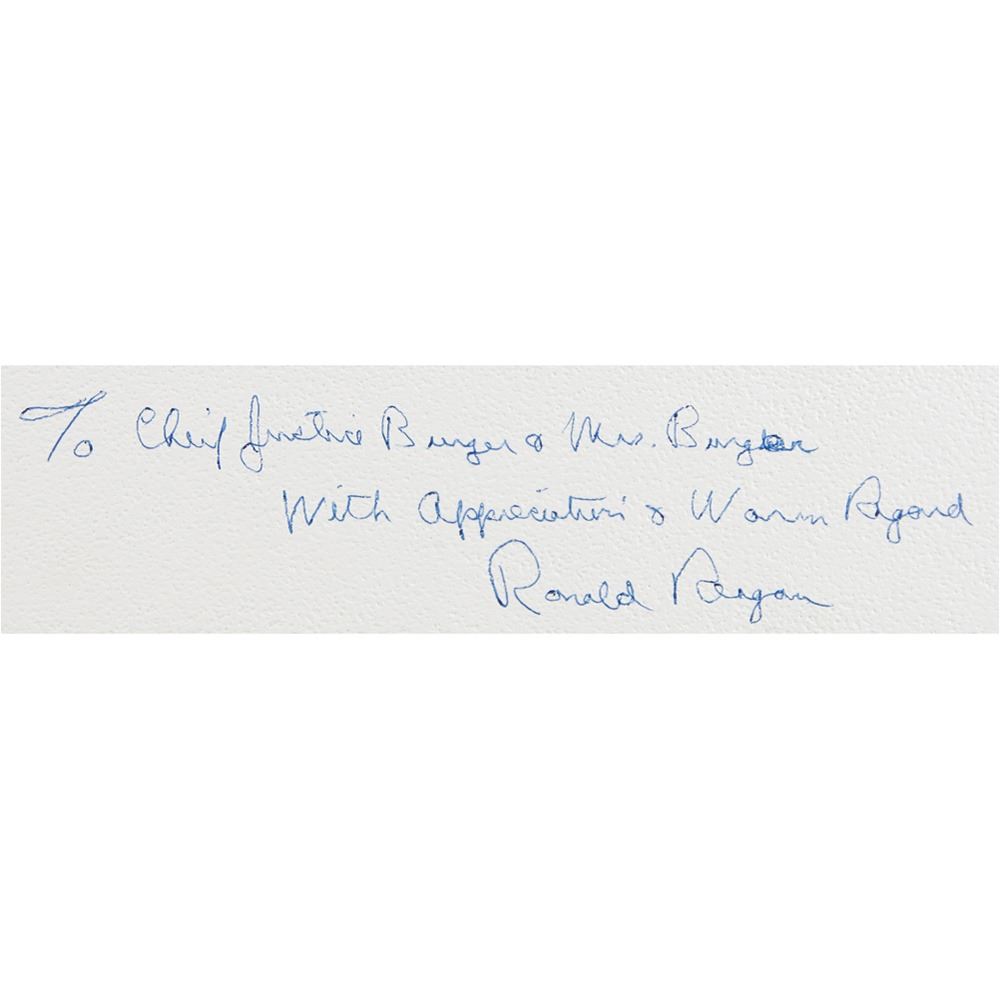 To Chief Justice Burger & Mrs. Burger
With Appreciation & Warm Regard
Ronald Reagan